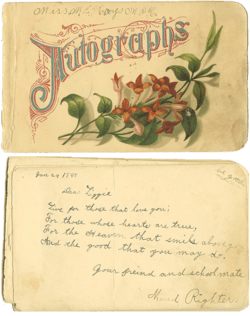 Autographs
Dear Lizzie
Live for those that love you;
For those whose hearts are true,
For the Heaven that smile above you
And the good that you may do.
Your freind and schoolmate
Righter.